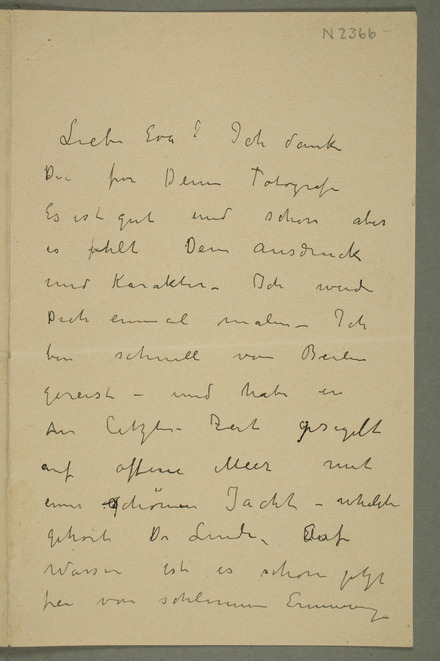 N 2366
Liebe Eva! Ich danke
Dir für Deine Fotografi
Es ist gut und schön aber
es fehlt Dein Ausdruck
und Karakter – Ich werde
Dich einmal malen – Ich
bin schnell von Berlin
gereist – und habe in
der letzten Zeit gesegelt
auf offene Meer mit
einer schönen Jacht – whelche
gehört Dr Linde. Auf
Wasser ist es schön jetzt
frei von schlimme